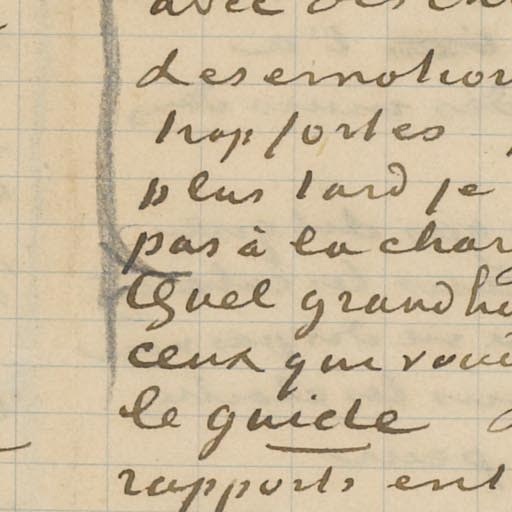 avec des
des emotion
trop fortes
plus tard je
pas à la char
Quel grand h
ceux qui
le guide
rapports ent